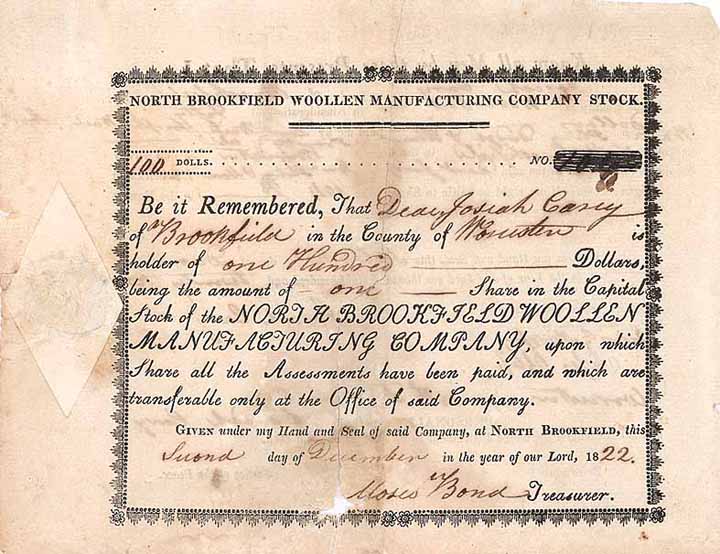 NORTH BROOKFIELD WOOLLEN MANUFACTURING COMPANY STOCK.
100 DOLLS. NO.
Be it Remembered, That Deac. Josiah Carey
of Brookfield in the County of Worcester is
holder of one Hundred Dollars,
being the amount of one Share in the Capital
Stock of the NORTH BROOKFIELD WOOLLEN
MANUFACTURING COMPANY, upon which
Share all the Assessments have been paid, and which are
transferable only at the Office of said Company.
GIVEN under my Hand and Seal of said Company, at NORTH BROOKFIELD, this
Second day of December in the year of our Lord, 1822.
Moses Bond Treasurer.